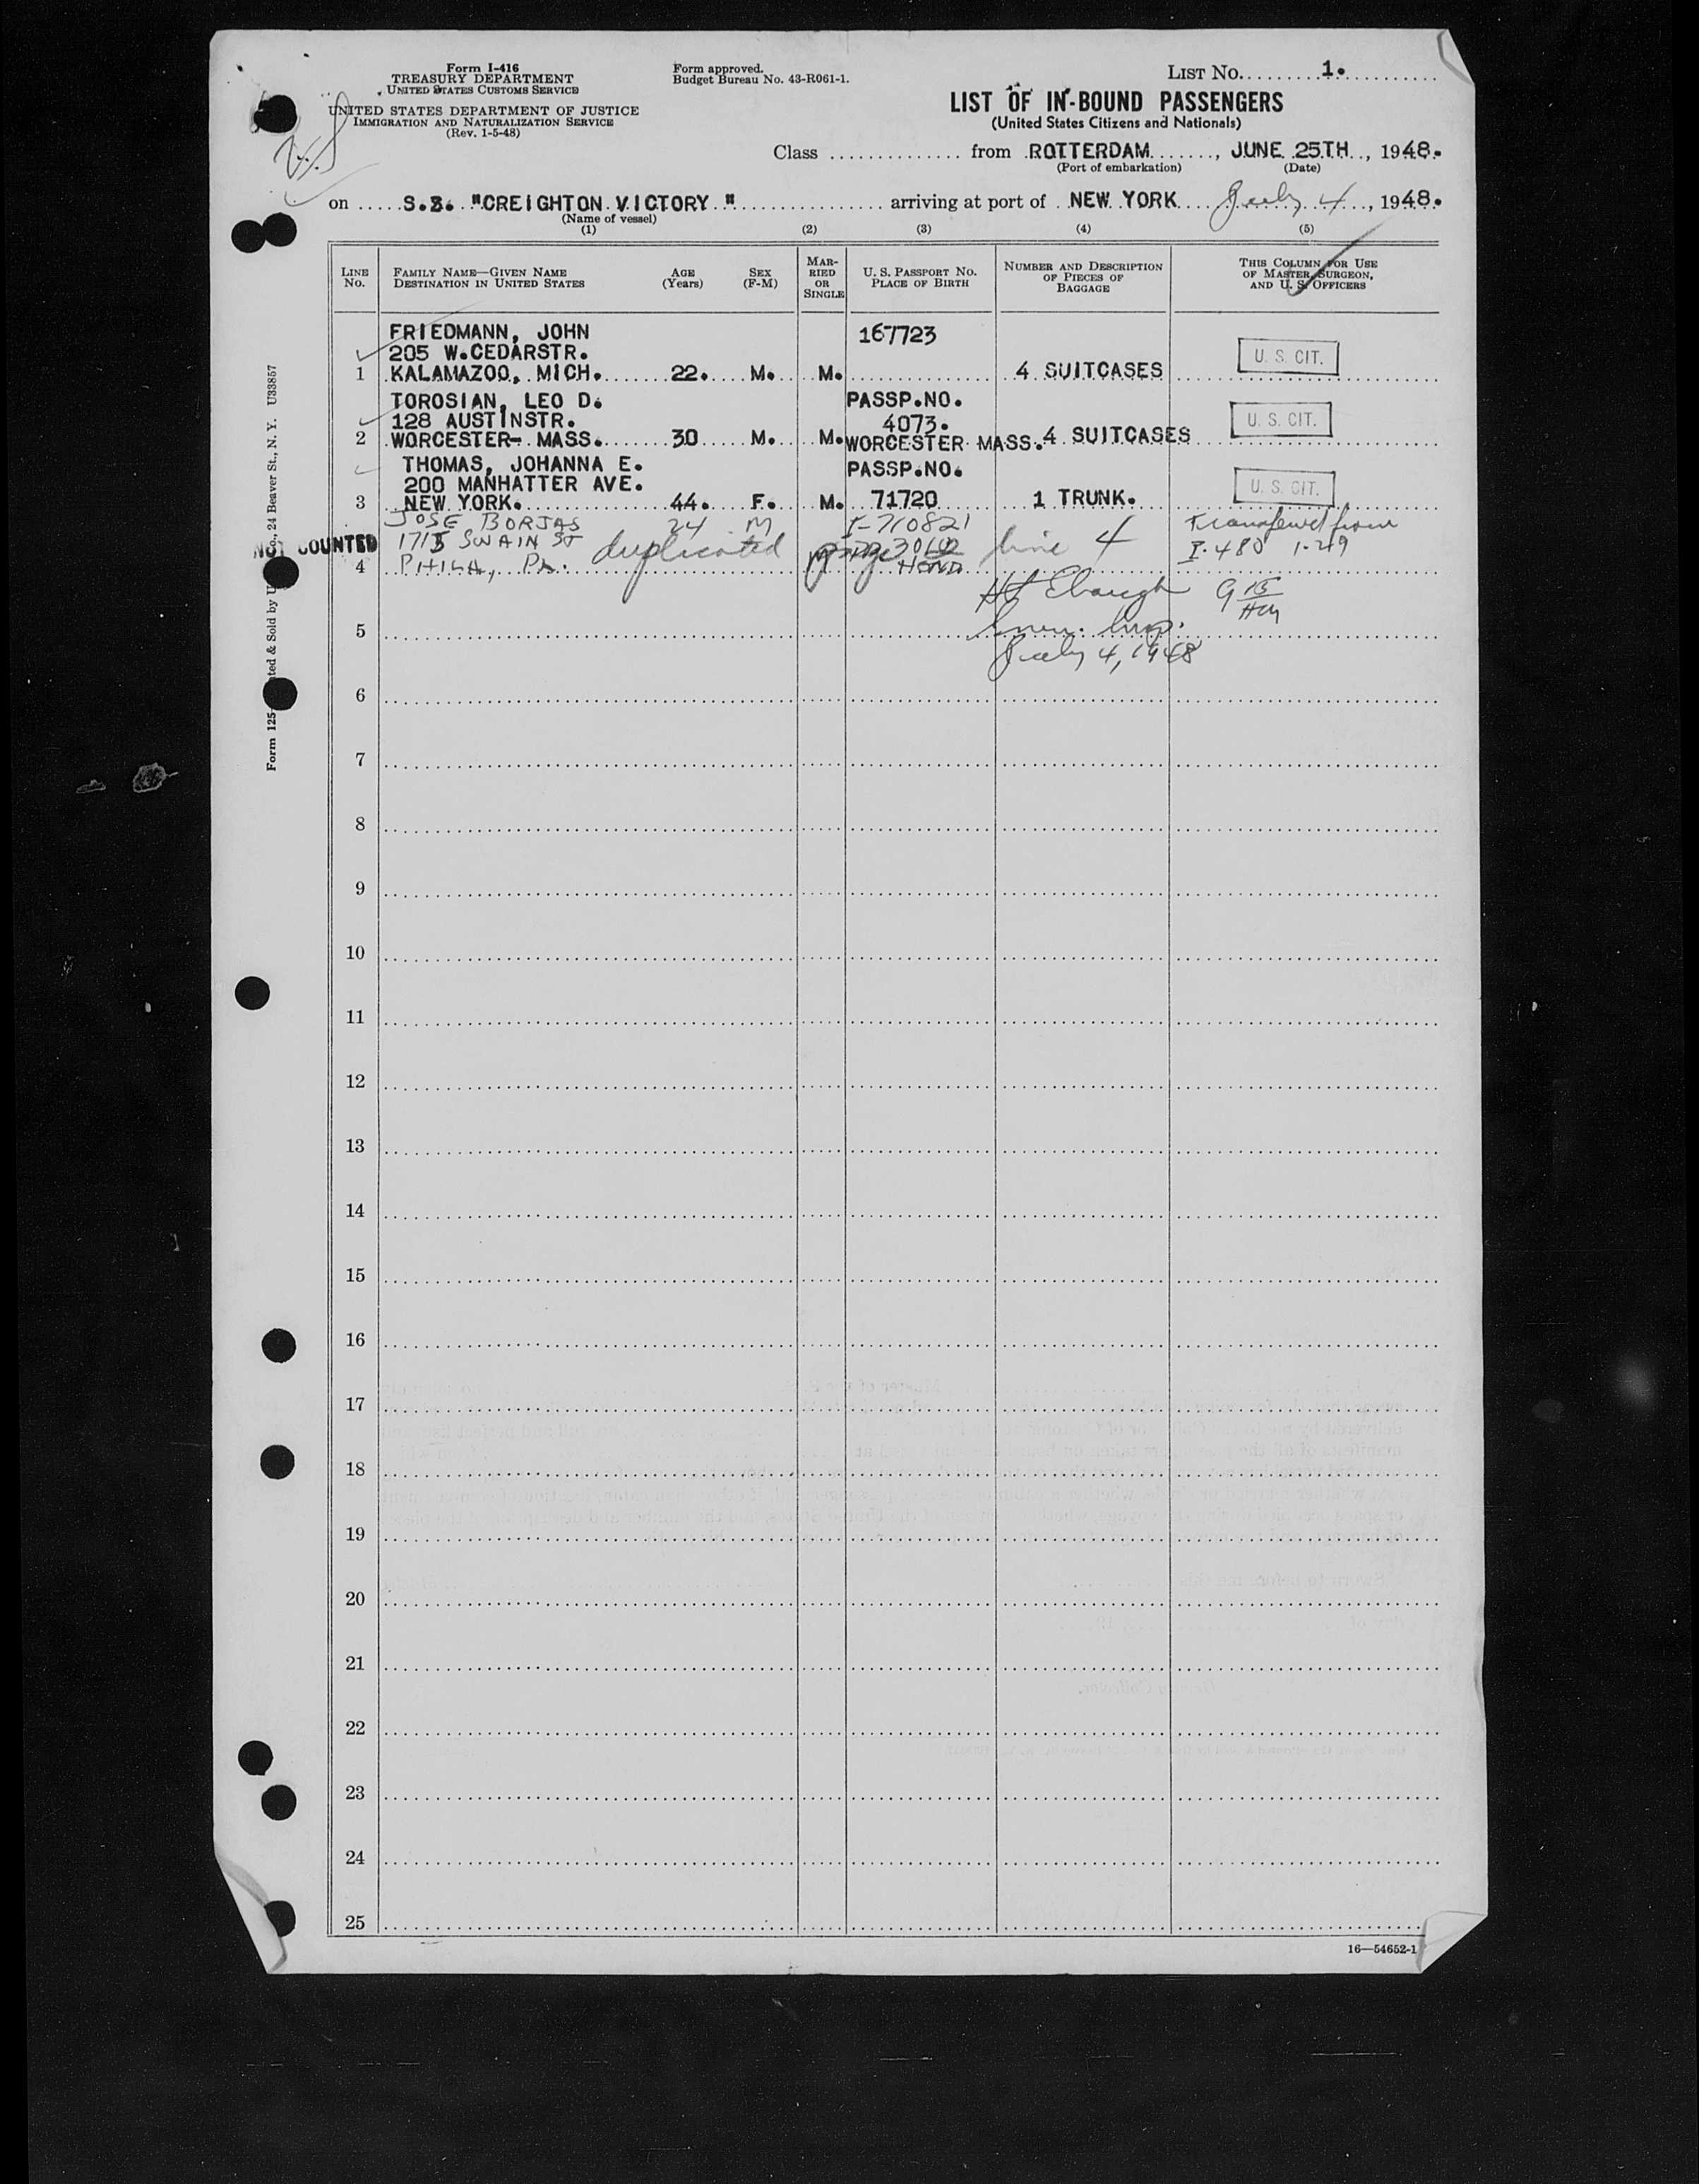 Form I-416
TREASURY DEPARTMENT
UNITED STATES CUSTOMS SERVICE
UNITED STATES DEPARTMENT OF JUSTICE
IMMIGRATION AND NATURALIZATION SERVICE
(Rev. 1-5-48)
Form approved.
Budget Bureau No. 43-R061-1.
LIST NO. 1.
LIST OF IN-BOUND PASSENGERS
(United States Citizens and Nationals)
Class from ROTTERDAM, JUNE 25TH, 1948.
(Port of embarkation) (Date)
on S.S. "CREIGHTON VICTORY" arriving at port of NEW YORK July 4, 1948.
(Name of vessel)
(1) (2) (3) (4) (5)
LINE NO.
FAMILY NAME—GIVEN NAME
DESTINATION IN UNITED STATES
AGE (Years)
SEX (F-M)
MARRIED OR SINGLE
U. S. PASSPORT NO.
PLACE OF BIRTH
NUMBER AND DESCRIPTION OF PIECES OF BAGGAGE
THIS COLUMN FOR USE OF MASTER, SURGEON, AND U. S. OFFICERS
FRIEDMANN, JOHN 167723
205 W.CEDARSTR. U. S. CIT.
1 KALAMAZOO, MICH. 22. M. M. 4 SUITCASES
TOROSIAN, LEO D. PASSP.NO.
128 AUSTINSTR. 4073. U. S. CIT.
2 WORCESTER- MASS. 30 M. M. WORCESTER MASS. 4 SUITCASES
THOMAS, JOHANNA E. PASSP.NO.
200 MANHATTER AVE. U. S. CIT.
3 NEW YORK. 44. F. M. 71720 1 TRUNK.
JOSE BORJAS 24 M I-710821 Transferred from
NOT COUNTED 1715 SWAIN ST duplicated page line 4 I-480 1-249
4 PHILA, PA. HOND
Ebaugh
5 Imm. Insp.
July 4, 1948
6
7
8
9
10
11
12
13
14
15
16
17
18
19
20
21
22
23
24
25
16—54652-1
Form 125
24 Beaver St., N. Y. U33857